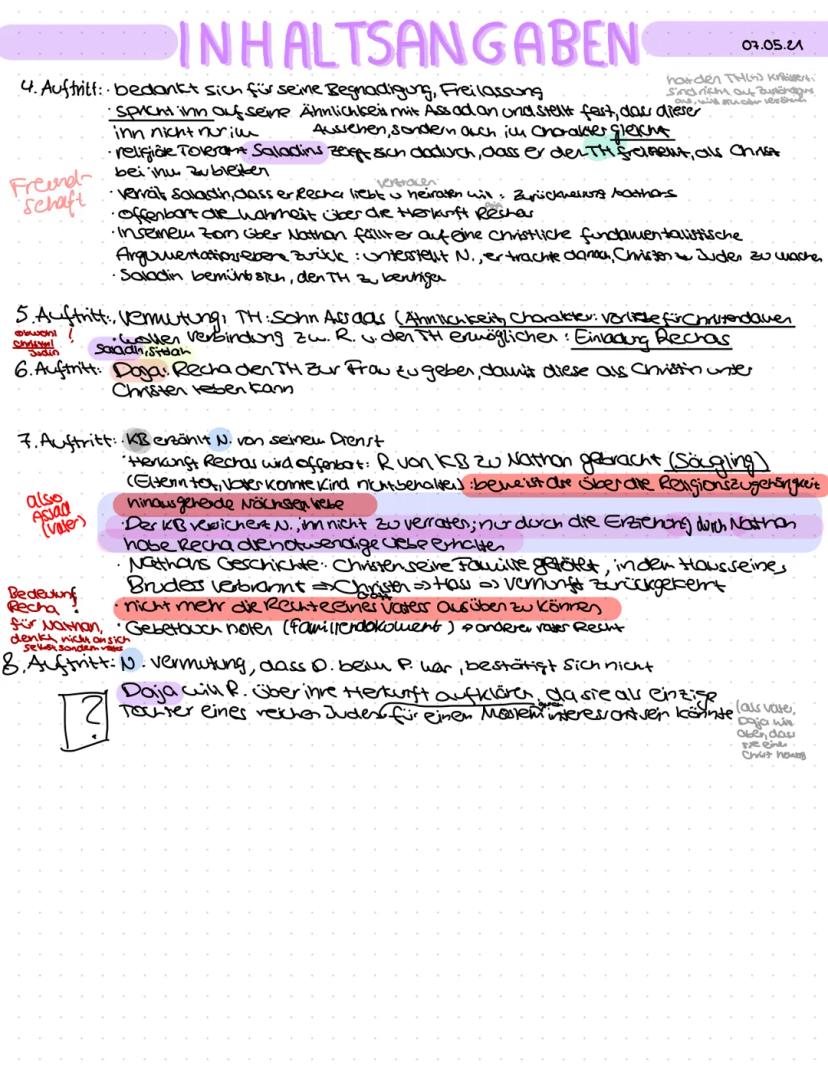 INHALTSANGABEN
07.05.21
4. Auftritt: · bedankt sich für seine Begnadigung, Freilassung
· spricht ihn auf seine Ähnlichkeit mit Assad an und stellt fest, dass dieser
ihn nicht nur im Aussehen, sondern auch im Charakter gleicht
· religiöse Toleranz Saladins zeigt sich dadurch, dass er den TH, als Christ
bei ihm zu bleiben
Freund-
schaft
Vertrauen
· verrät Saladin, dass er Recha liebt u heiraten will: Zurückweisung Nathans
· offenbart die Wahrheit über die Herkunft Rechas
· In seinem Zorn über Nathan fällt er auf eine christliche fundamentalistische
Argumentationsebene zurück: unterstellt N., er trachte danach, Christen zu Juden zu machen
· Saladin bemüht sich, den TH zu beruhigen
5. Auftritt: Vermutung: TH: Sohn Assads (Ähnlichkeit, Charakter: Vorliebe für Christendamen
obwohl !
Christin/
Jüdin
· wollen Verbindung zw. R. u. den TH ermöglichen: Einladung Rechas
Saladin, Sittah
6. Auftritt: Daja: Recha den TH zur Frau zu geben, damit diese als Christin unter
Christen leben kann
7. Auftritt: · KB erzählt N. von seinem Dienst
· Herkunft Rechas wird offenbart: R von KB zu Nathan gebracht (Säugling)
(Eltern tot, Vater konnte Kind nicht behalten): beweist die über die Religionszugehörigkeit
hinausgehende Nächstenliebe
also
Assad
(Vater)
· Der KB versichert N., ihn nicht zu verraten; nur durch die Erziehung durch Nathan
habe Recha die notwendige Liebe erhalten
· Nathans Geschichte: Christen seine Familie getötet, in dem Haus seines
Bruders verbrannt ⇒ Christen ⇒ Hass ⇒ Vernunft zurückgekehrt
Bedeutung
Recha !
für Nathan,
denkt nicht an sich
selbst sondern
· nicht mehr die Rechte eines Vaters ausüben zu können
· Gebetbuch holen (Familiendokument) ⇒ anderer Vater Recht
8. Auftritt: N. Vermutung, dass D. beim P. war, bestätigt sich nicht
?
Daja will R. über ihre Herkunft aufklären, da sie als einzige
Tochter eines reichen Juden für einen Moslem interessant sein könnte
(als Vater,
Daja will
aber, dass
sie einen
Christ